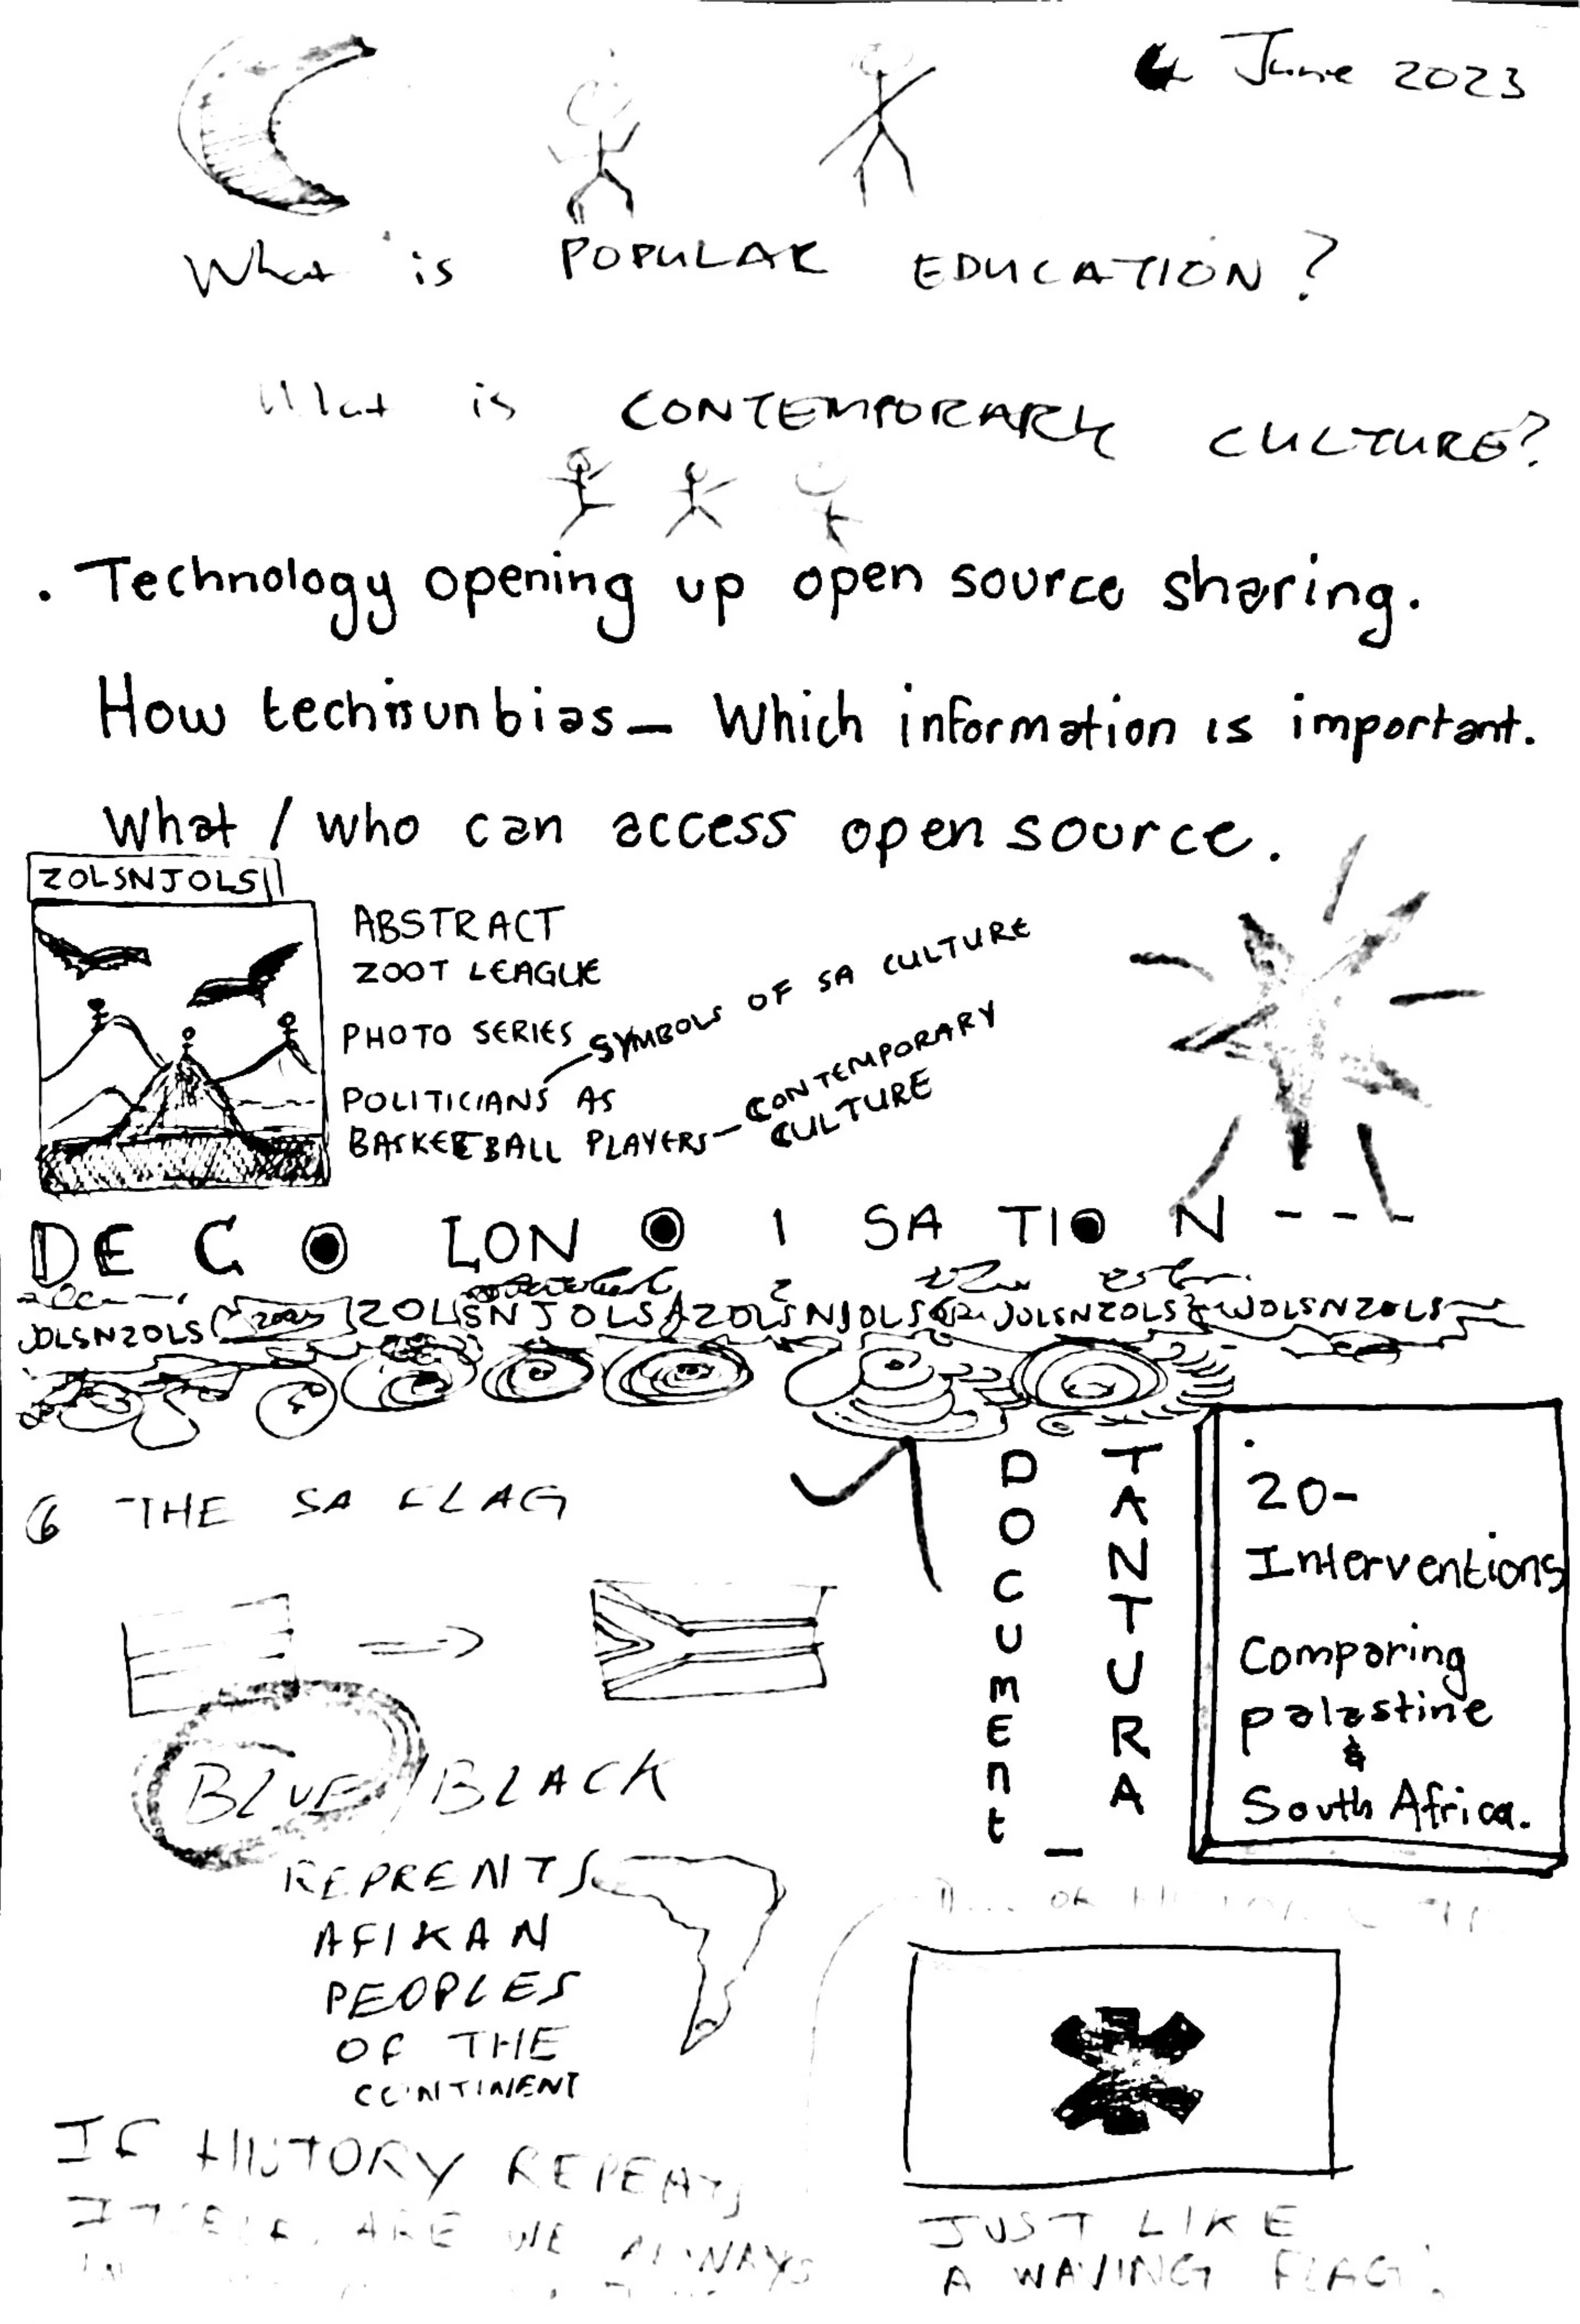 4 June 2023
What is POPULAR EDUCATION?
What is CONTEMPORARY CULTURE?
. Technology opening up open source sharing.
How tech is unbias _ Which information is important.
What / who can access open source.
ZOLSNJOLS
ABSTRACT
ZOOT LEAGUE
PHOTO SERIES
SYMBOLS OF SA CULTURE
POLITICIANS AS
BASKETBALL PLAYERS
CONTEMPORARY
CULTURE
DE C O LON O I SA TION - - -
JOLSNZOLS 2023 ZOLSNJOLS ZOLSNJOLS JOLSNZOLS WOLSNZOLS
THE SA FLAG
DOCUMEnt _
TANTURA
20-
Interventions
Comparing
palastine
&
South Africa.
BLUE / BLACK
REPRENTS
AFIKAN
PEOPLES
OF THE
CONTINENT
OF
IF HISTORY REPEATS
ITSELF, ARE WE ALWAYS
IN
JUST LIKE
A WAVING FLAG.